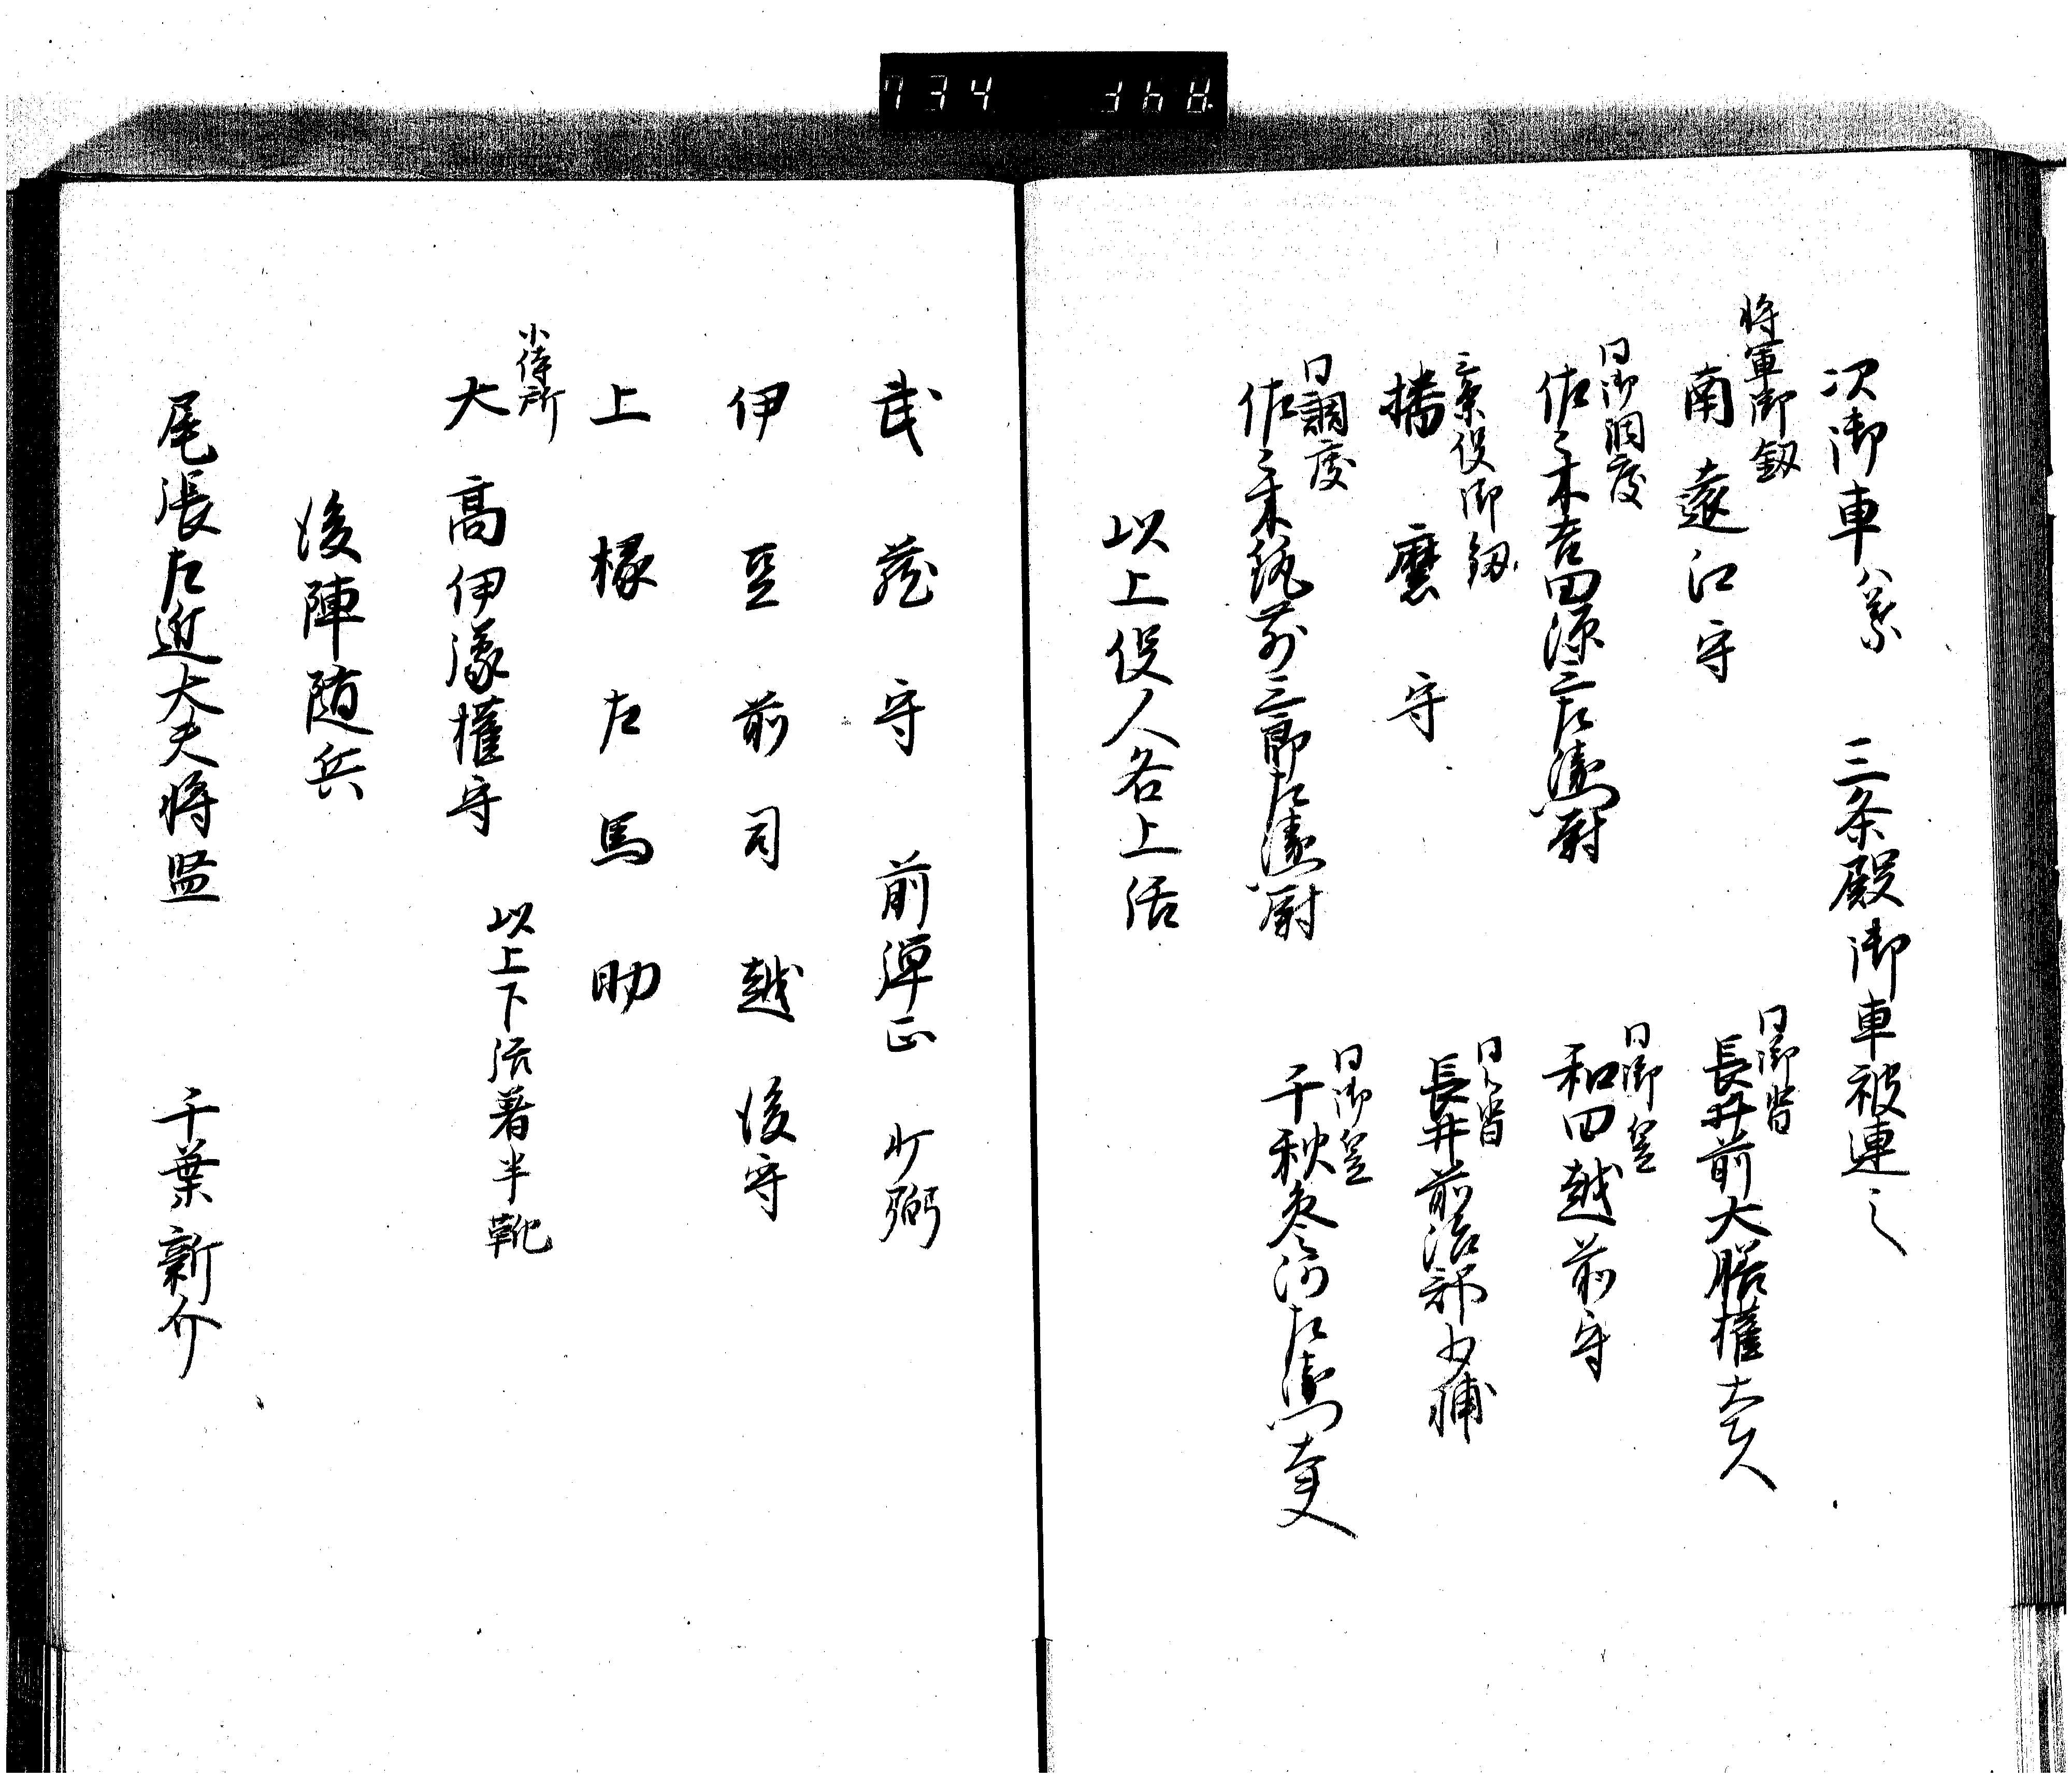 次御車八葉　三条殿御車被連之
将軍御釼
南遠江守
同御沓
長井前大膳権大夫
同御調度
佐々木吉田源三左衛門尉
同御笠
和田越前守
三条役御釼
播磨守
同沓
長井前治部少輔
同調度
佐々木筑前三郎左衛門尉
同御笠
千秋参河左衛門大夫
以上役人各上活
武蔵守　前弾正少弼
伊豆前司　越後守
上椙左馬助
小侍所
大高伊予権守
以上下活著半靴
後陣随兵
尾張左近大夫将監　千葉新介
734 368